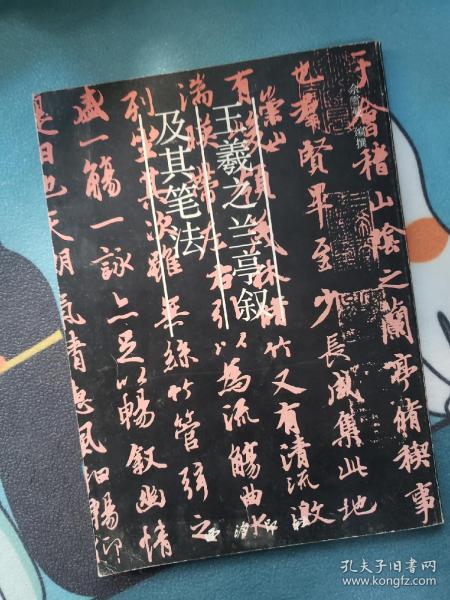 余雪曼 编撰
王羲之兰亭叙
及其笔法
于會稽山陰之蘭亭脩稧事
也羣賢畢至少長咸集此地
有崇山峻領茂林脩竹又有清流激
湍暎帶左右引以為流觴曲水
列坐其次雖無絲竹管弦之
盛一觴一詠亦足以暢叙幽情
是日也天朗氣清惠風和暢仰
西泠印社
孔夫子旧书网
www.kongfz.com